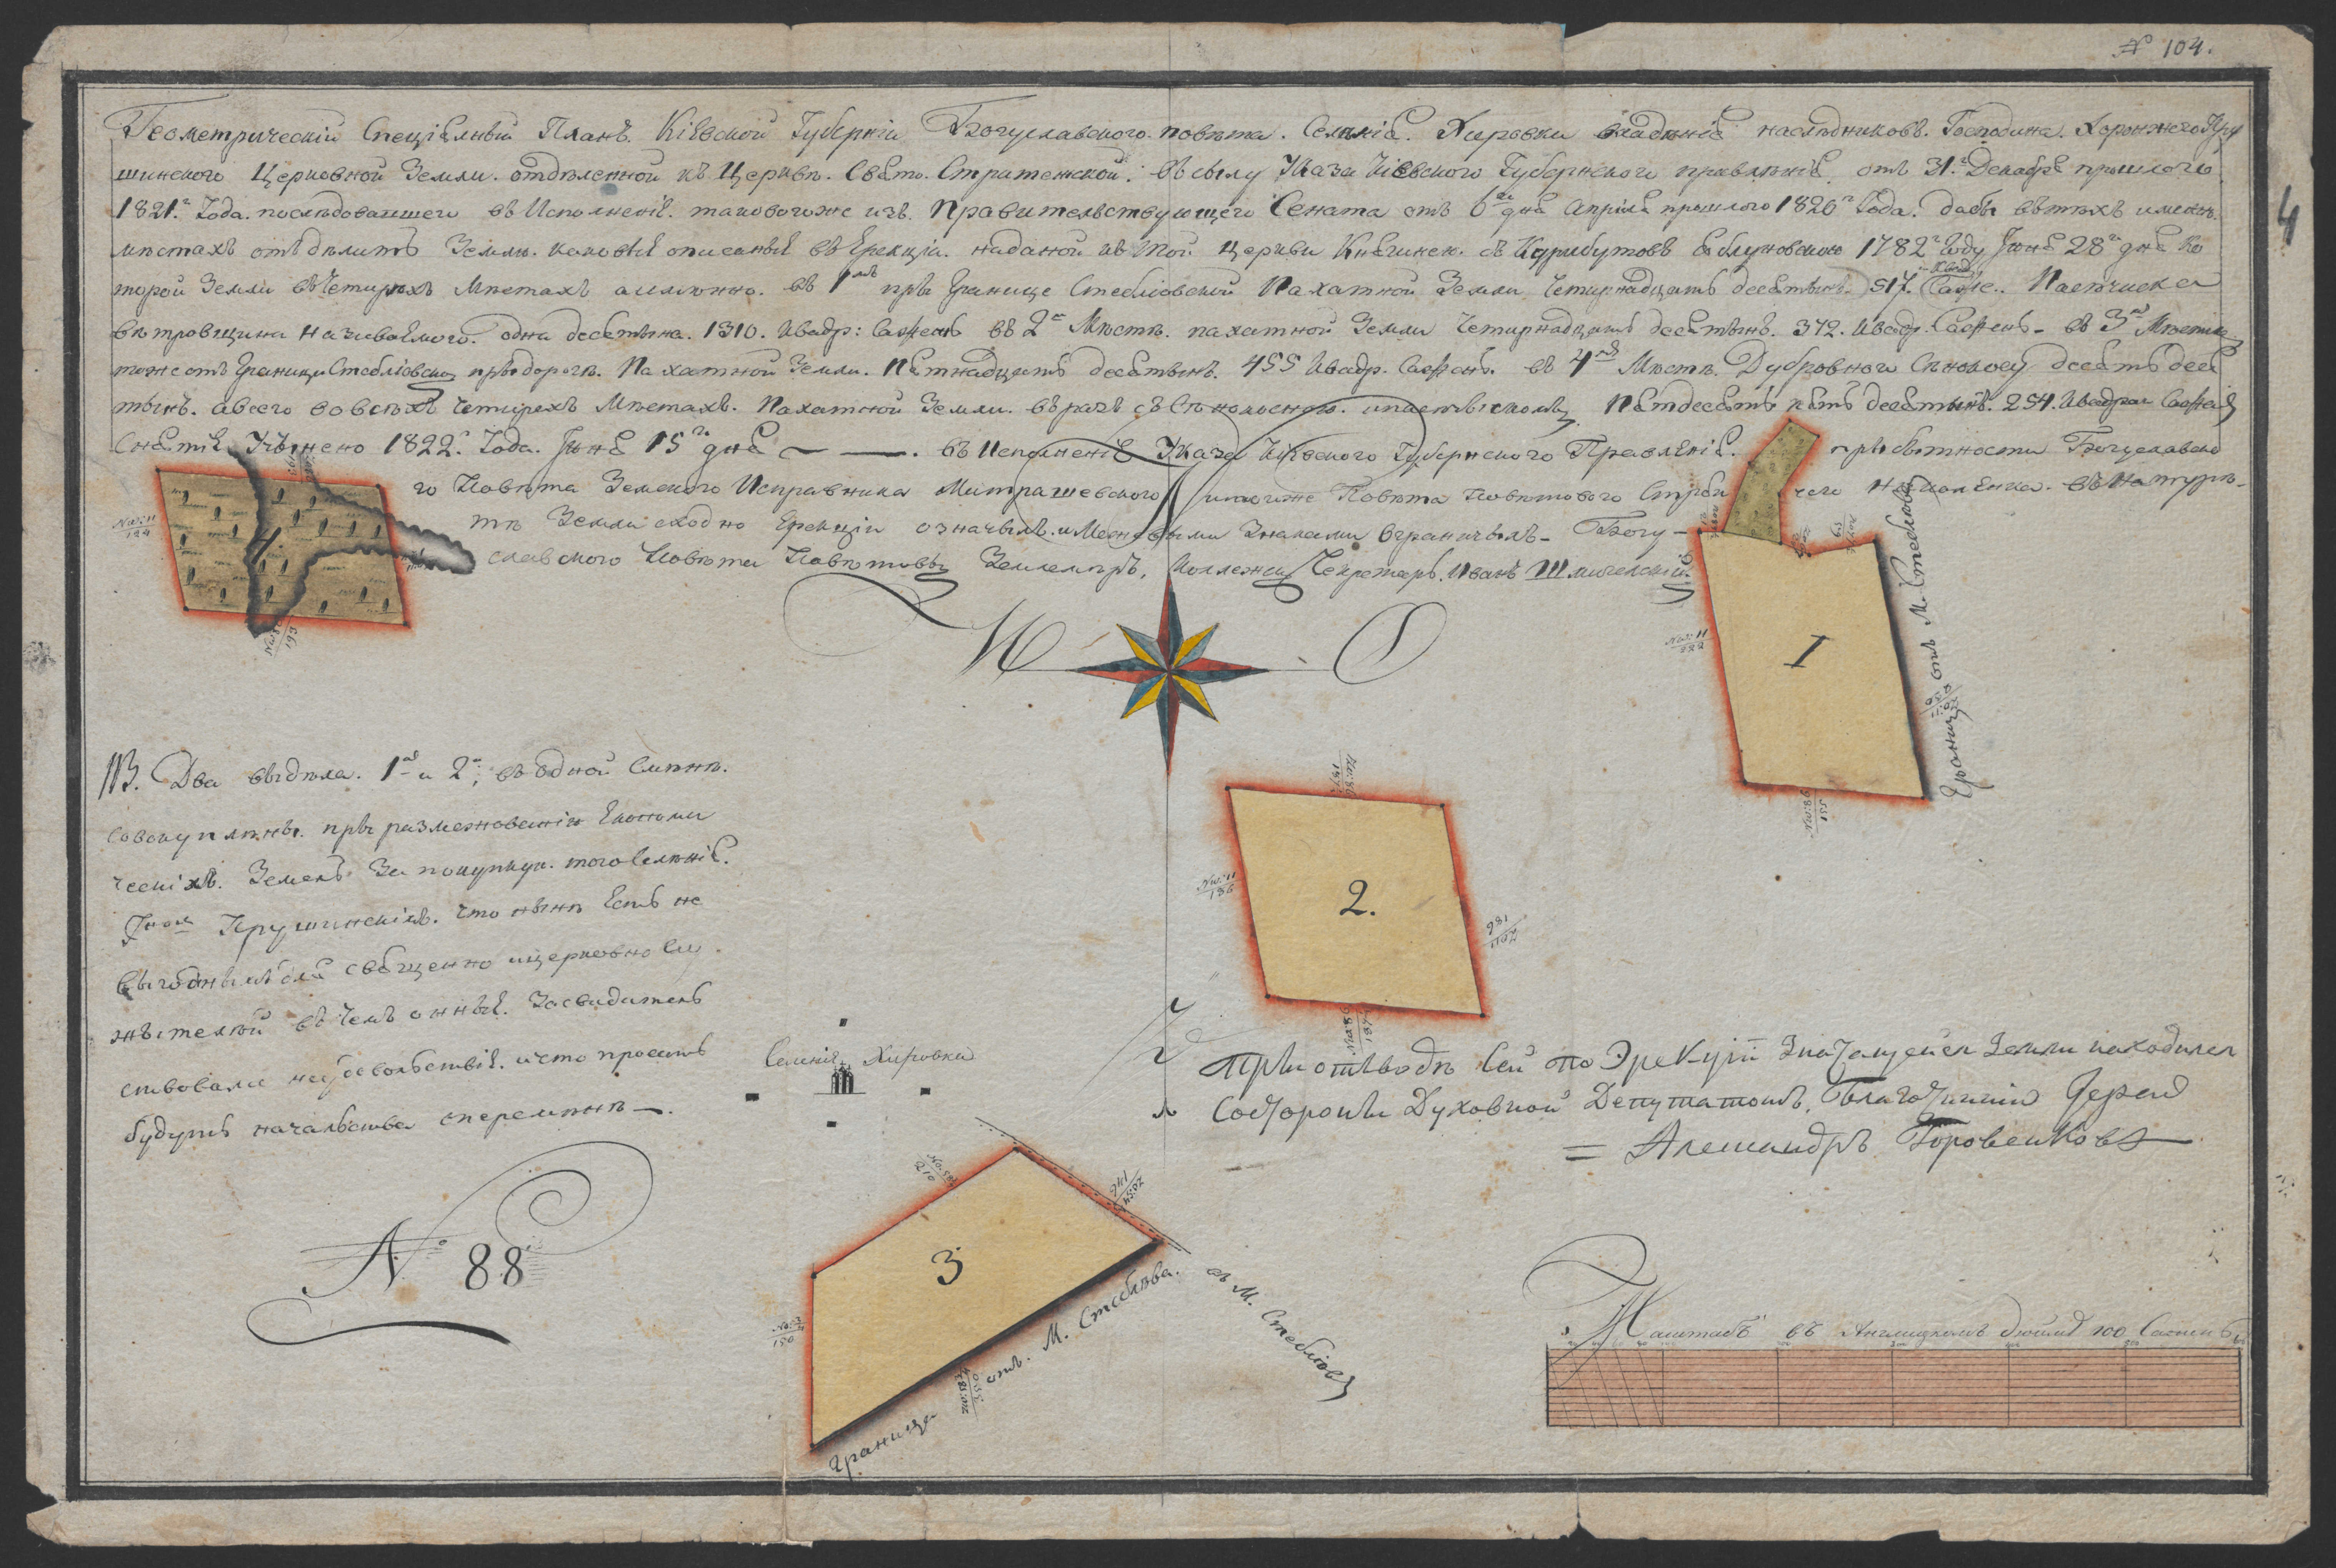 № 104.
4
Геометрическій Спеціалный Планъ. Кіевской Губерніи Богуславского повѣта. Селенія. Хировки владѣнія наслѣдниковъ. Господина. Хоронжего Кру
шинского Церковной Земли. отдѣленной къ Церквѣ. Свято. Стратенской. въ сылу Указа Кіевского Губернского правленія. отъ 31.г Декабря прошлого
1821.г Года. послѣдовавшего въ Исполненіе. таковогоже изъ. Правительствующего Сената отъ 6го дня Апрѣля прошлого 1820г Года. дабы вътѣхъ именно.
мѣстахъ отъдѣлить Землю. каковыя описаныя въ Ерекціи. наданой къ той. Церкви Княгинею. съ Корибутовъ Яблуновскою 1782г Году Іюня 28го дня ко
торой Земли въЧетирохъ Мѣстахъ аименно. въ 1мъ при Границе Стеблювской Пахатной Земли Четирнадцать десятынъ. 517. Квад: Сажне.. Пасѣчиска
вѣтровщини називаемого. одна десятына. 1310. Квадр: Сажень въ 2м Мѣстѣ. пахатной Земли Четирнадцать десятынъ. 372. Квадр. Сажень - въ 3м Мѣстѣ
тоже отъ Границы Стебліовской при дорогѣ. Пахатной Земли. Пятнадцать десятынъ. 455 Квадр. Сажень. въ 4мъ Мѣстѣ. Дубровного Сѣнокосу десять деся
тынъ. авсего вовсѣхъ Четирехъ Мѣстахъ. Пахатной Земли. въразъ съ Сѣнокосного. ипасѣчискомъ Пятдесятъ пять десятынъ. 254. Квадрат Сажень
Снятіе Учинено 1822.г Года. Іюня 15го дня — —. въ Исполненіе Указа Кіевского Губернского Правленія. при бытности Богуславско
го Повѣта Земского Исправника Митрашевского итогоже Повѣта Повѣтового Стряпчего Николенка. въ Натурѣ-
тѣ Земли сходно Ерекціи означылъ. и Межевыми Знаками Ограничылъ - Богу-
славского Повѣта Повѣтовый Землемѣръ, Коллежск Секретарь. Иванъ Шмигельскій.
4.
1
Границы отъ М. Стеблюва
W
O
2.
NB. Два выдѣла. 1й и 2й, въ одной Смѣнѣ.
совокуплѣны. при размежованіи Економи
ческіхъ. Земель За покупкун. того Селѣнія.
Крушинскімъ. Что нынѣ Есть не
выгоднымъ для священно ицерковно Слу
жытелѣй въ Чемъ онныя. Засвидѣтель
ствовали неудовольствіе. ичто просить
будутъ начальства оперемѣнѣ —.
Селеніе Хировка
При отводѣ Сей по Эрекціи Значащейся Земли находился
Состороны Духовной Депутатомъ, Благочинній Іерей
= Александръ Боровенковъ
№ 88
3
Граница отъ. М. Стеблѣва.
въ М. Стебліовъ
Маштабъ въ Английскомъ дюймѣ 100 Сажень